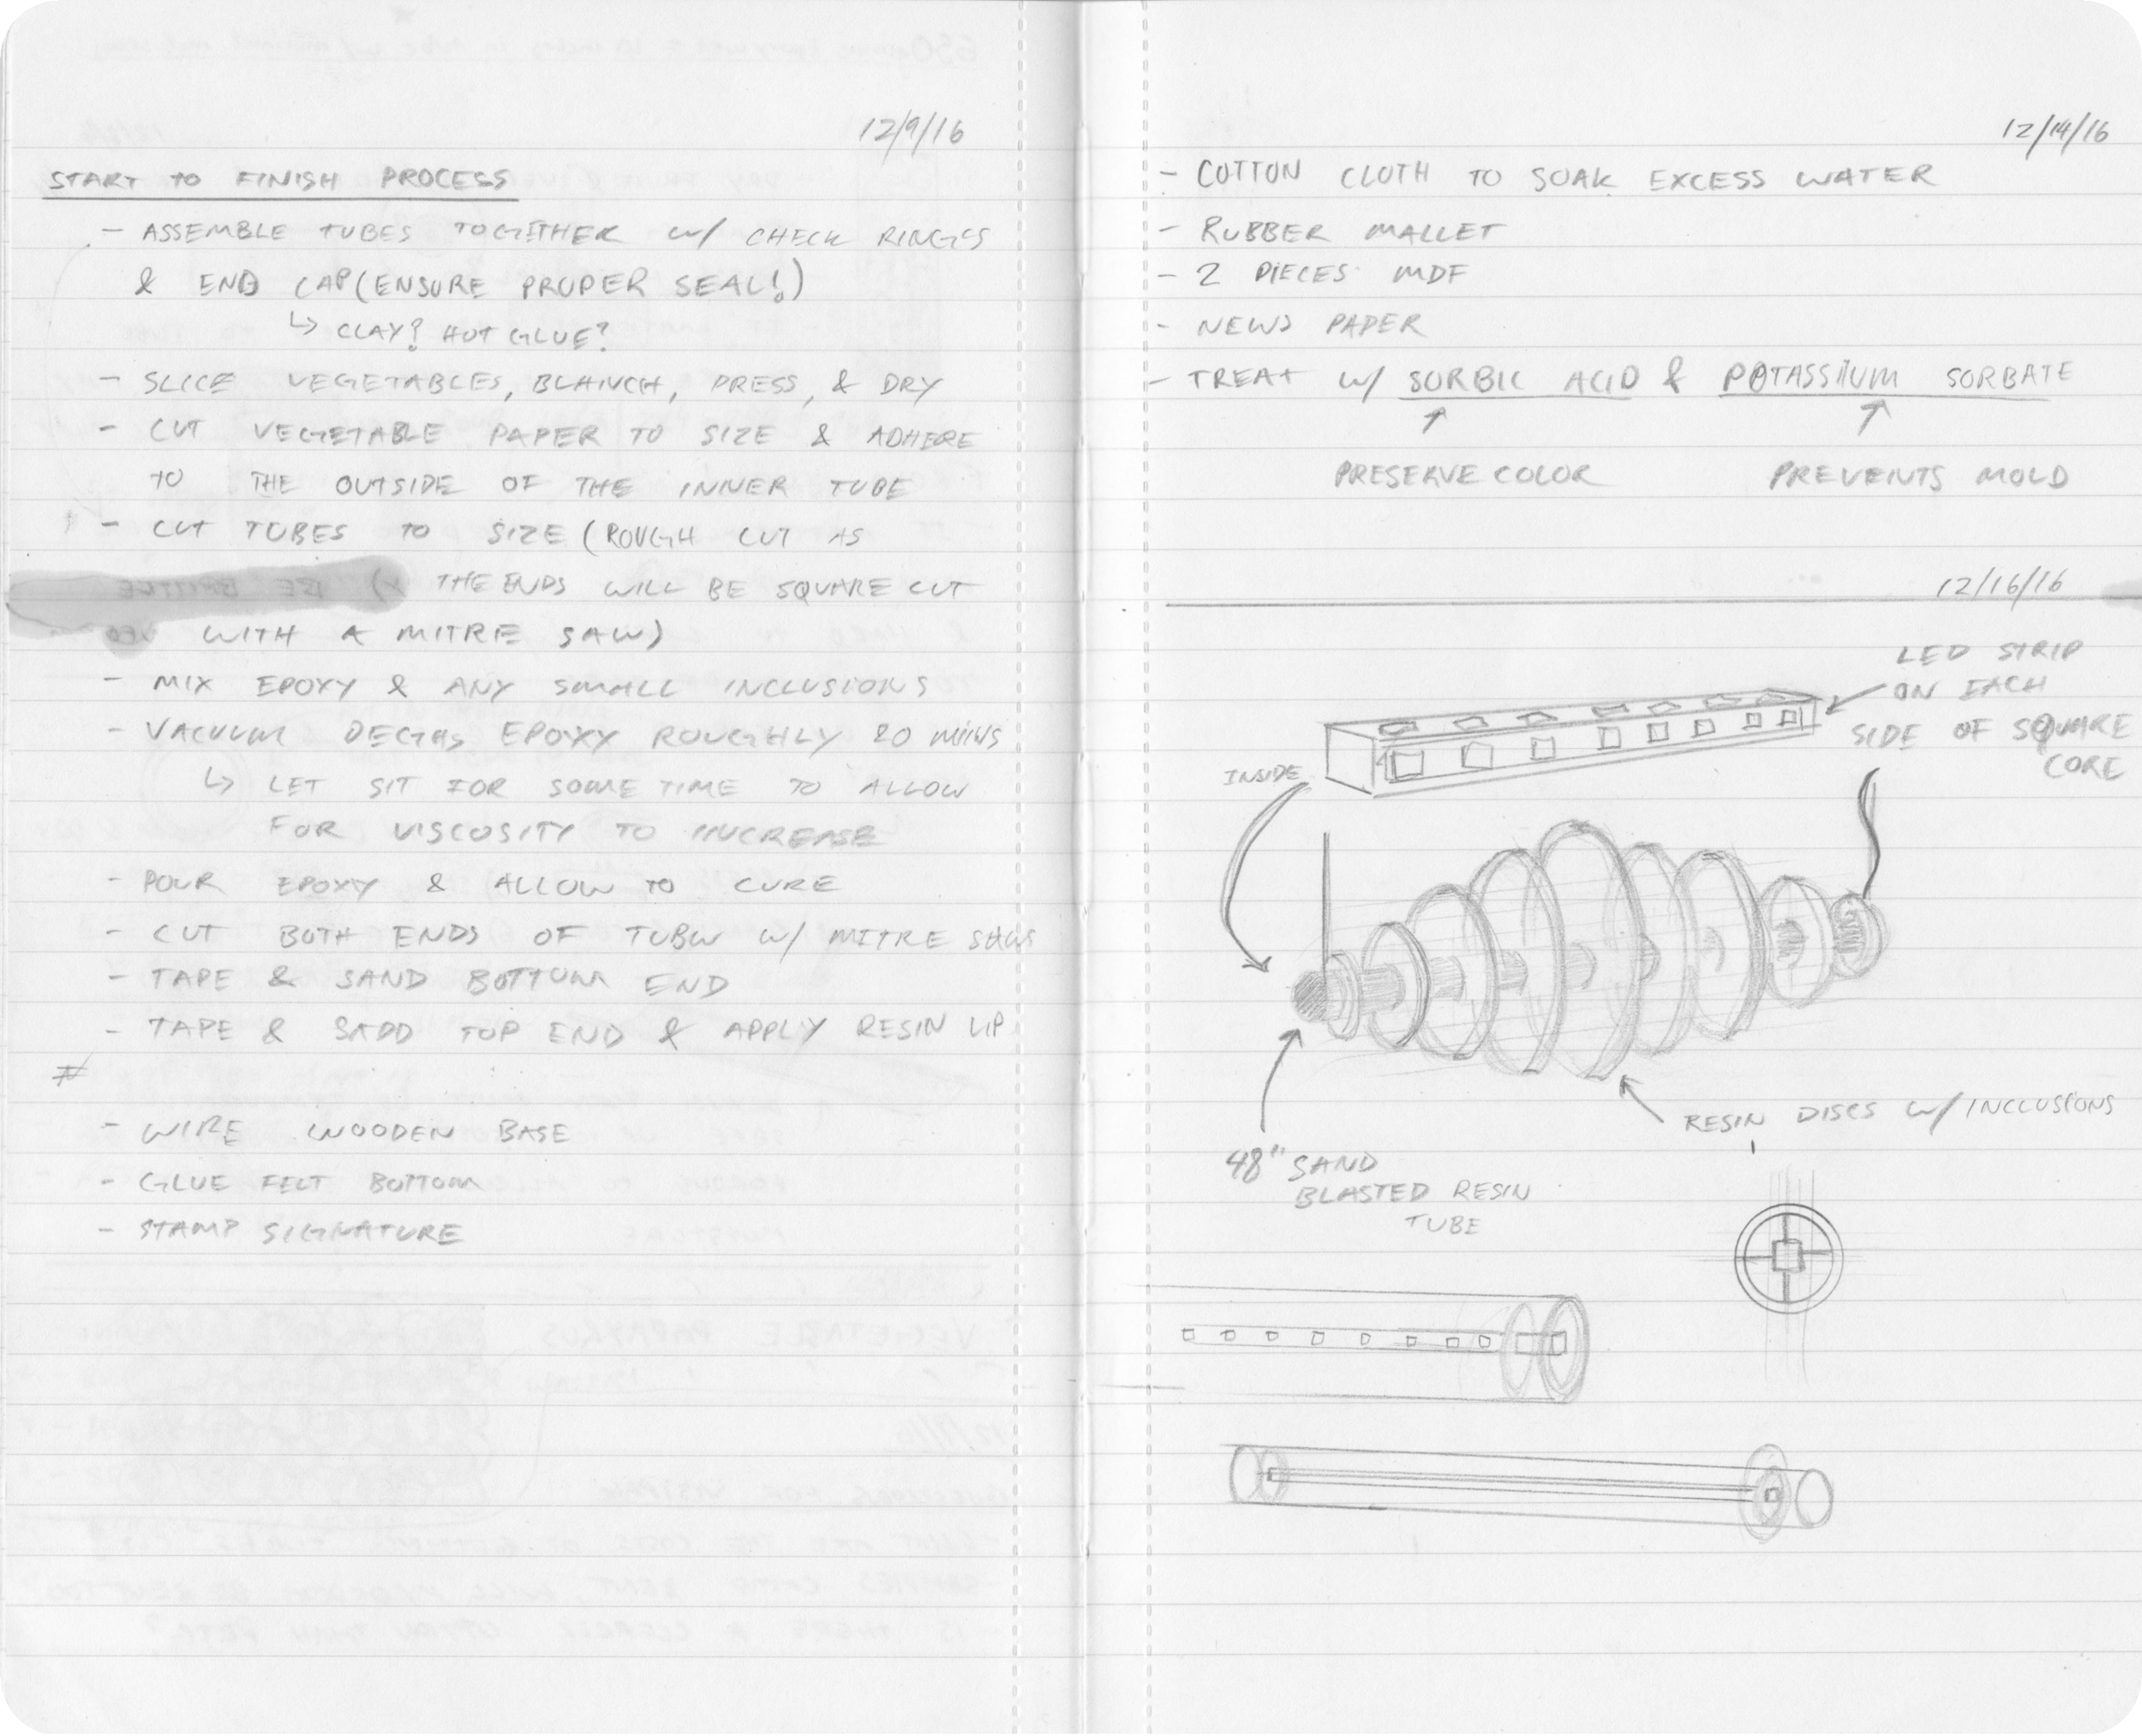 12/9/16
START TO FINISH PROCESS
- ASSEMBLE TUBES TOGETHER W/ CHECK RINGS
& END CAP (ENSURE PROPER SEAL!)
↳ CLAY? HOT GLUE?
- SLICE VEGETABLES, BLANCH, PRESS, & DRY
- CUT VEGETABLE PAPER TO SIZE & ADHERE
TO THE OUTSIDE OF THE INNER TUBE
- CUT TUBES TO SIZE (ROUGH CUT AS
THE ENDS WILL BE SQUARE CUT
WITH A MITRE SAW)
- MIX EPOXY & ANY SMALL INCLUSIONS
- VACUUM DEGAS EPOXY ROUGHLY 20 MINS
↳ LET SIT FOR SOME TIME TO ALLOW
FOR VISCOSITY TO INCREASE
- POUR EPOXY & ALLOW TO CURE
- CUT BOTH ENDS OF TUBW W/ MITRE SAWS
- TAPE & SAND BOTTOM END
- TAPE & SADD TOP END & APPLY RESIN LIP
- WIRE WOODEN BASE
- GLUE FELT BOTTOM
- STAMP SIGNATURE
12/14/16
- COTTON CLOTH TO SOAK EXCESS WATER
- RUBBER MALLET
- 2 PIECES MDF
- NEWS PAPER
- TREAT W/ SORBIC ACID & POTASSIUM SORBATE
PRESERVE COLOR PREVENTS MOLD
12/16/16
LED STRIP
ON EACH
SIDE OF SQUARE
CORE
INSIDE
RESIN DISCS W/ INCLUSIONS
48" SAND
BLASTED RESIN
TUBE